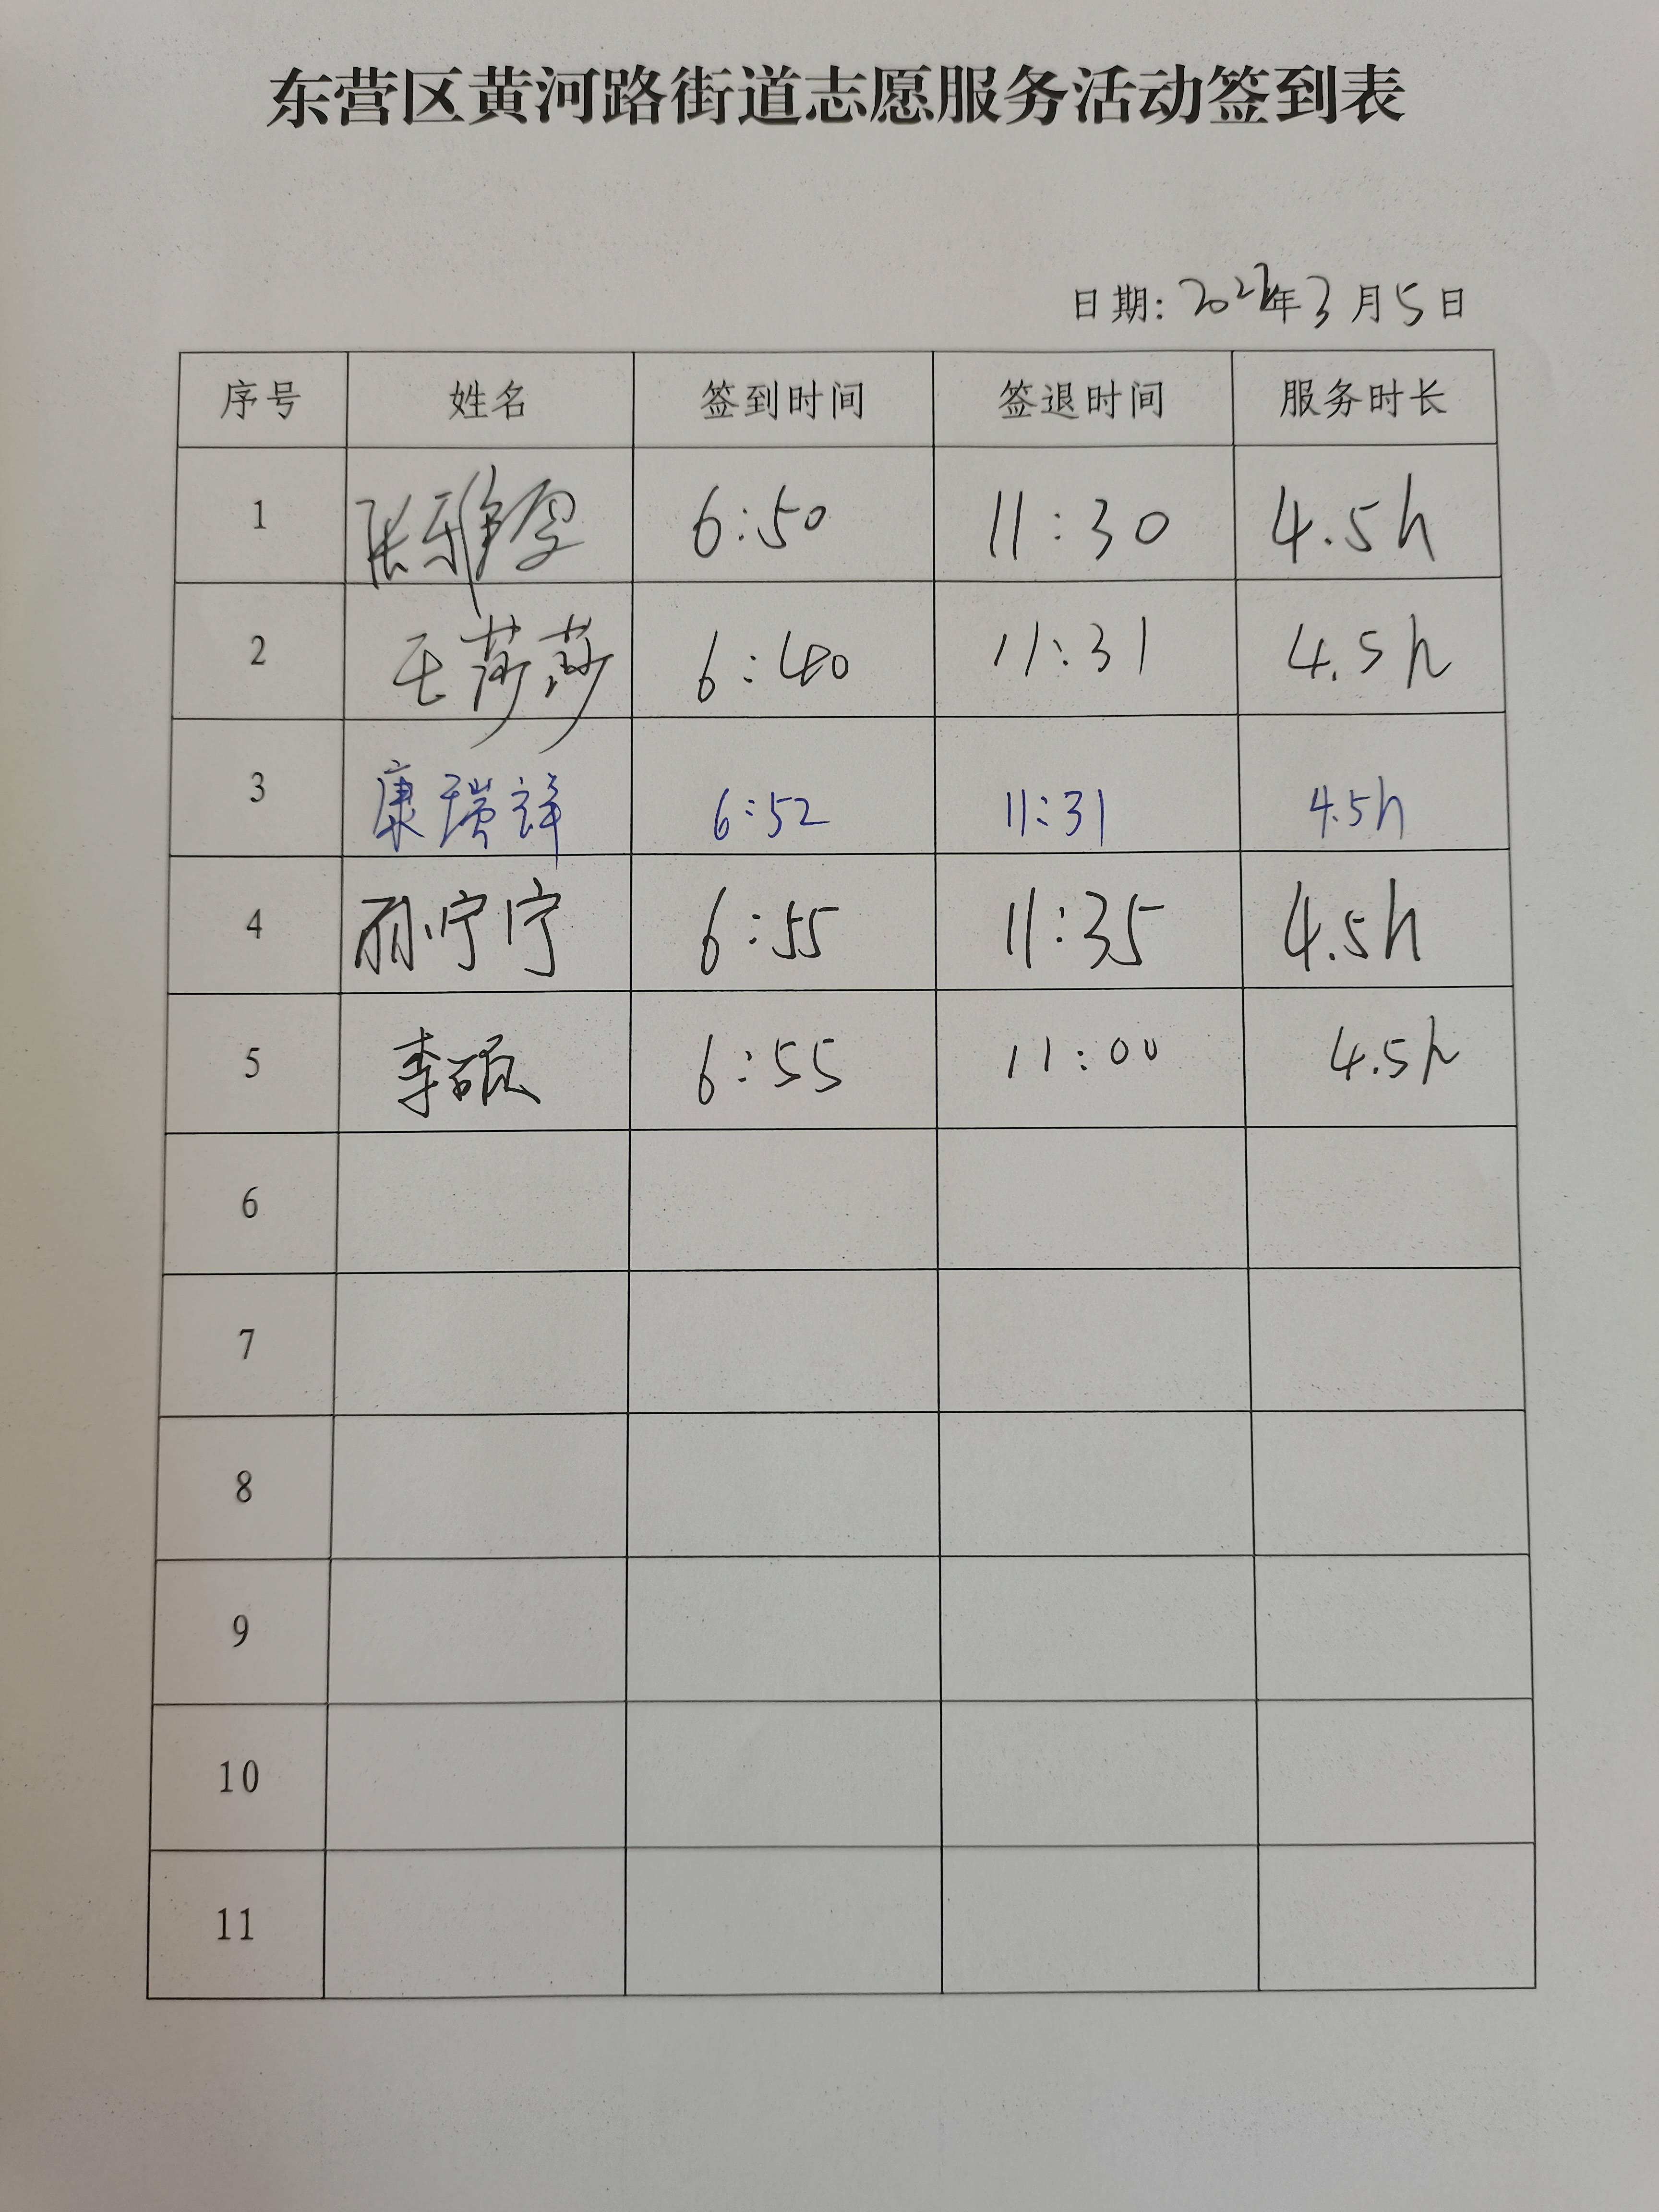 东营区黄河路街道志愿服务活动签到表
日期: 2022年3月5日
序号 姓名 签到时间 签退时间 服务时长
1 张雅 6:50 11:30 4.5h
2 王莎莎 6:40 11:31 4.5h
3 康瑞祥 6:52 11:31 4.5h
4 孙宁宁 6:55 11:35 4.5h
5 李硕 6:55 11:00 4.5h
6
7
8
9
10
11